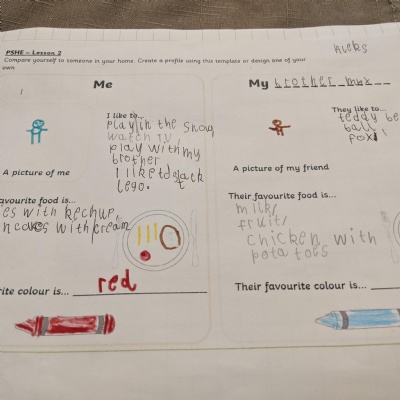 PSHE – Lesson 2
Compare yourself to someone in your home. Create a profile using this template or design one of your
own
Me
I like to...
play in the snow
watch TV,
play with my
brother
I like to
lego.
A picture of me
avourite food is...
es with kechup,
with cream
rite colour is... red
My brother max
They like to...
teddy be
ball
fox
A picture of my friend
Their favourite food is...
milk,
fruit,
chicken with
potatoes
Their favourite colour is...